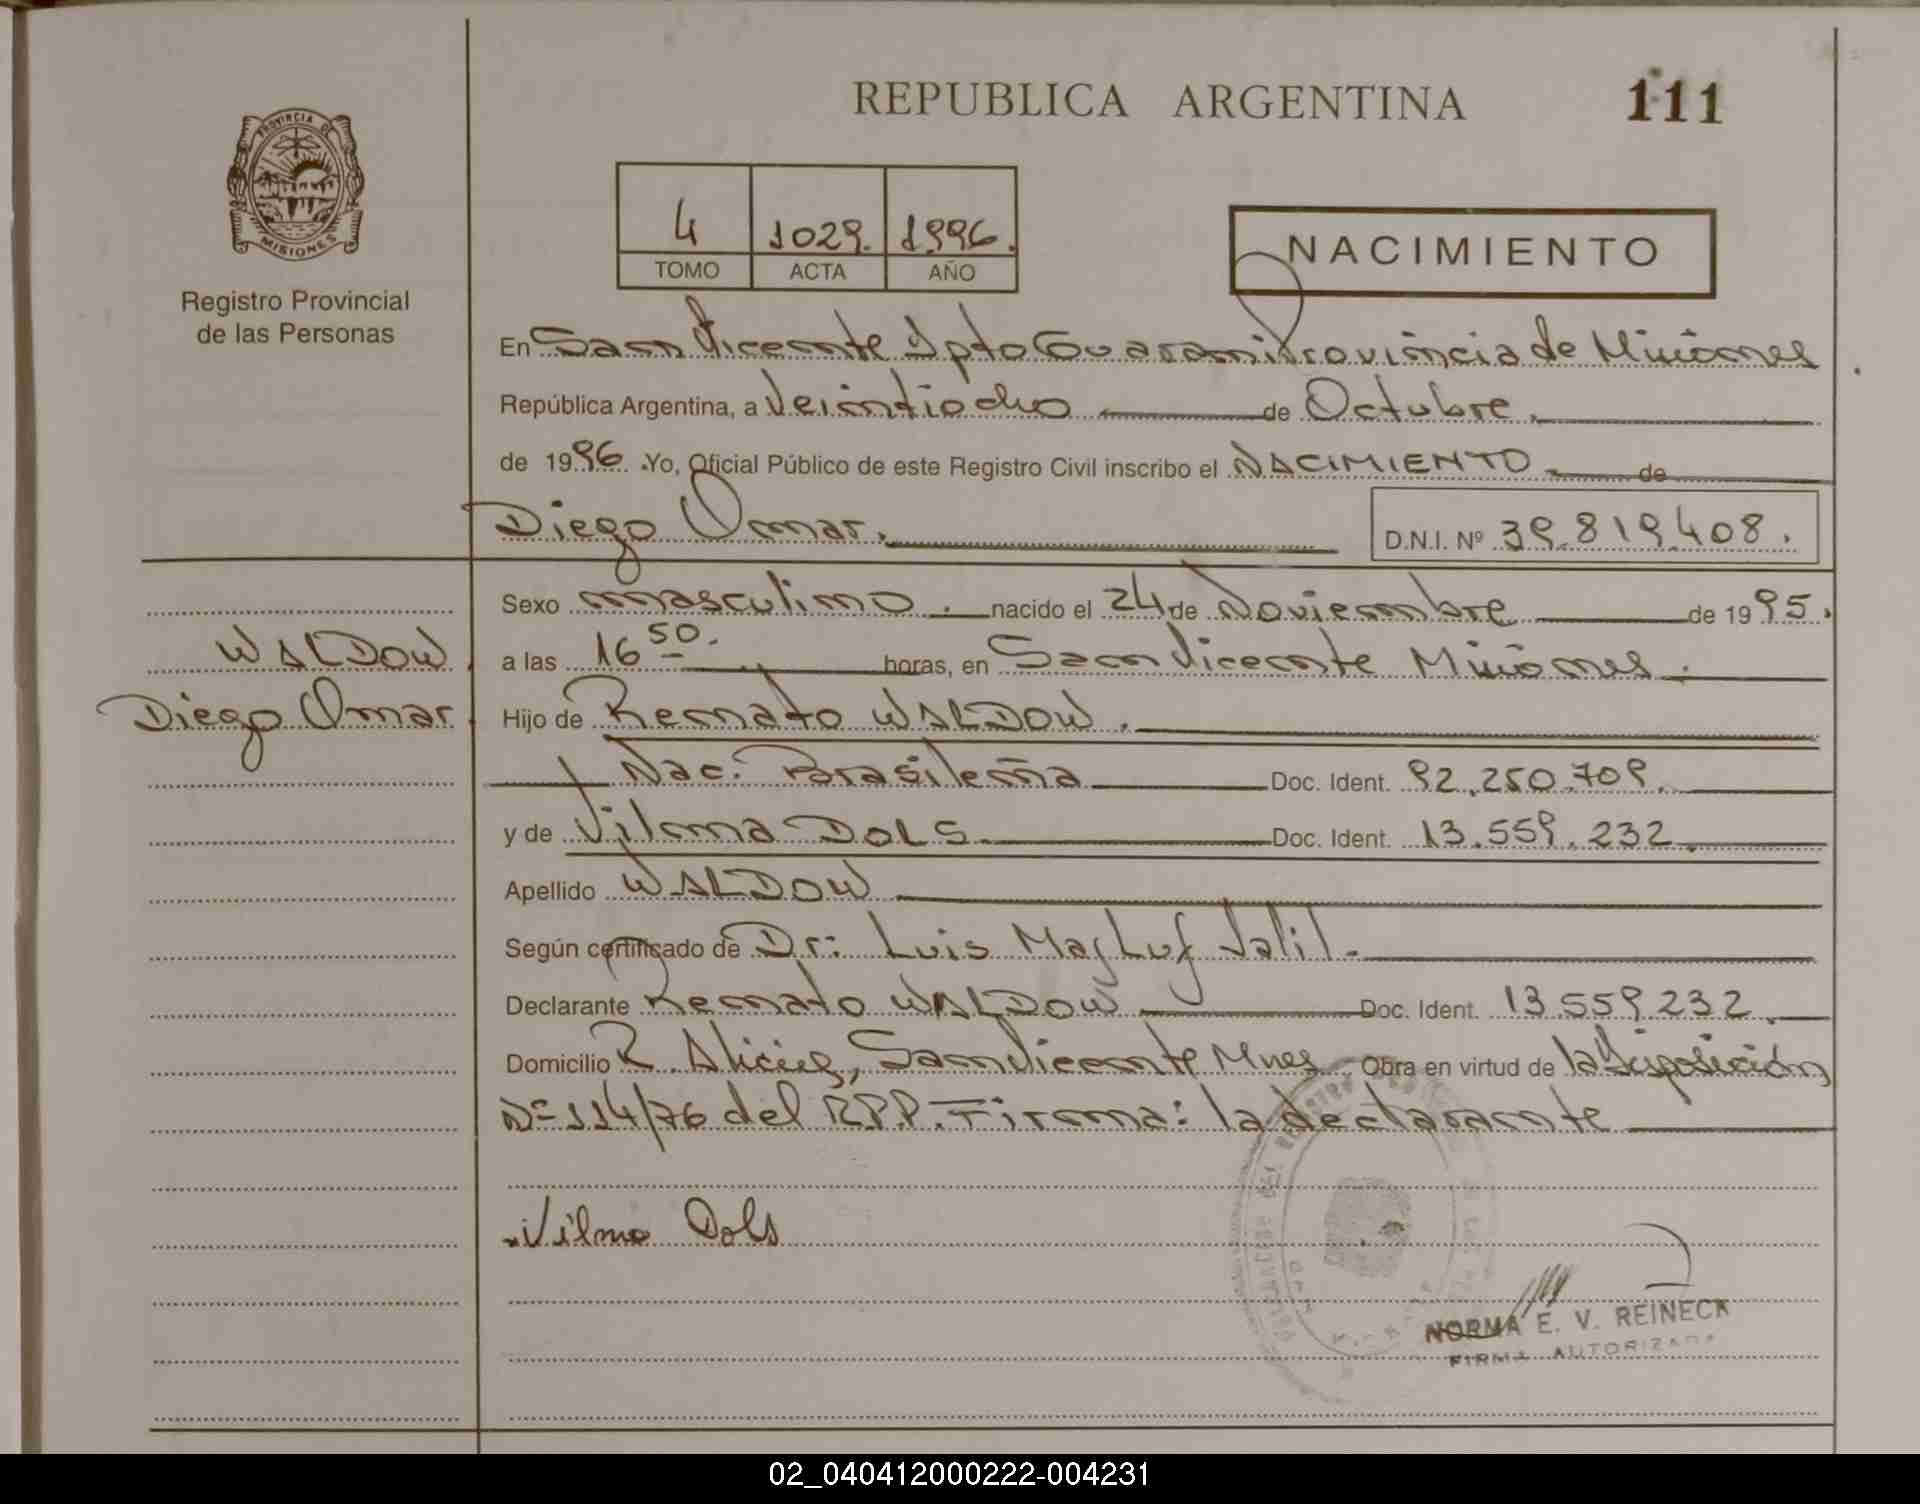 REPUBLICA ARGENTINA
111
PROVINCIA DE
MISIONES
Registro Provincial
de las Personas
4 1029. 1996.
TOMO ACTA AÑO
NACIMIENTO
En San Vicente Dpto Guarani Provincia de Misiones
República Argentina, a Veintiocho de Octubre.
de 1996. Yo, Oficial Público de este Registro Civil inscribo el NACIMIENTO de
Diego Omar. D.N.I. Nº 39.819.408.
WALDOW
Diego Omar
Sexo masculino. nacido el 24 de Noviembre de 1995.
a las 16 50. horas, en San Vicente Misiones.
Hijo de Renato WALDOW.
Nac: Brasileña Doc. Ident. 92.250.709.
y de Vilma DOLS Doc. Ident. 13.559.232.
Apellido WALDOW
Según certificado de Dr: Luis Majluf Jalil.
Declarante Renato WALDOW Doc. Ident. 13.559.232.
Domicilio San Vicente Mnes. Obra en virtud de la Disposición
Nº 114/76 del R.P.P. Firma: la declarante
Vilma Dols
NORMA E. V. REINECK
FIRMA AUTORIZADA
02_040412000222-004231